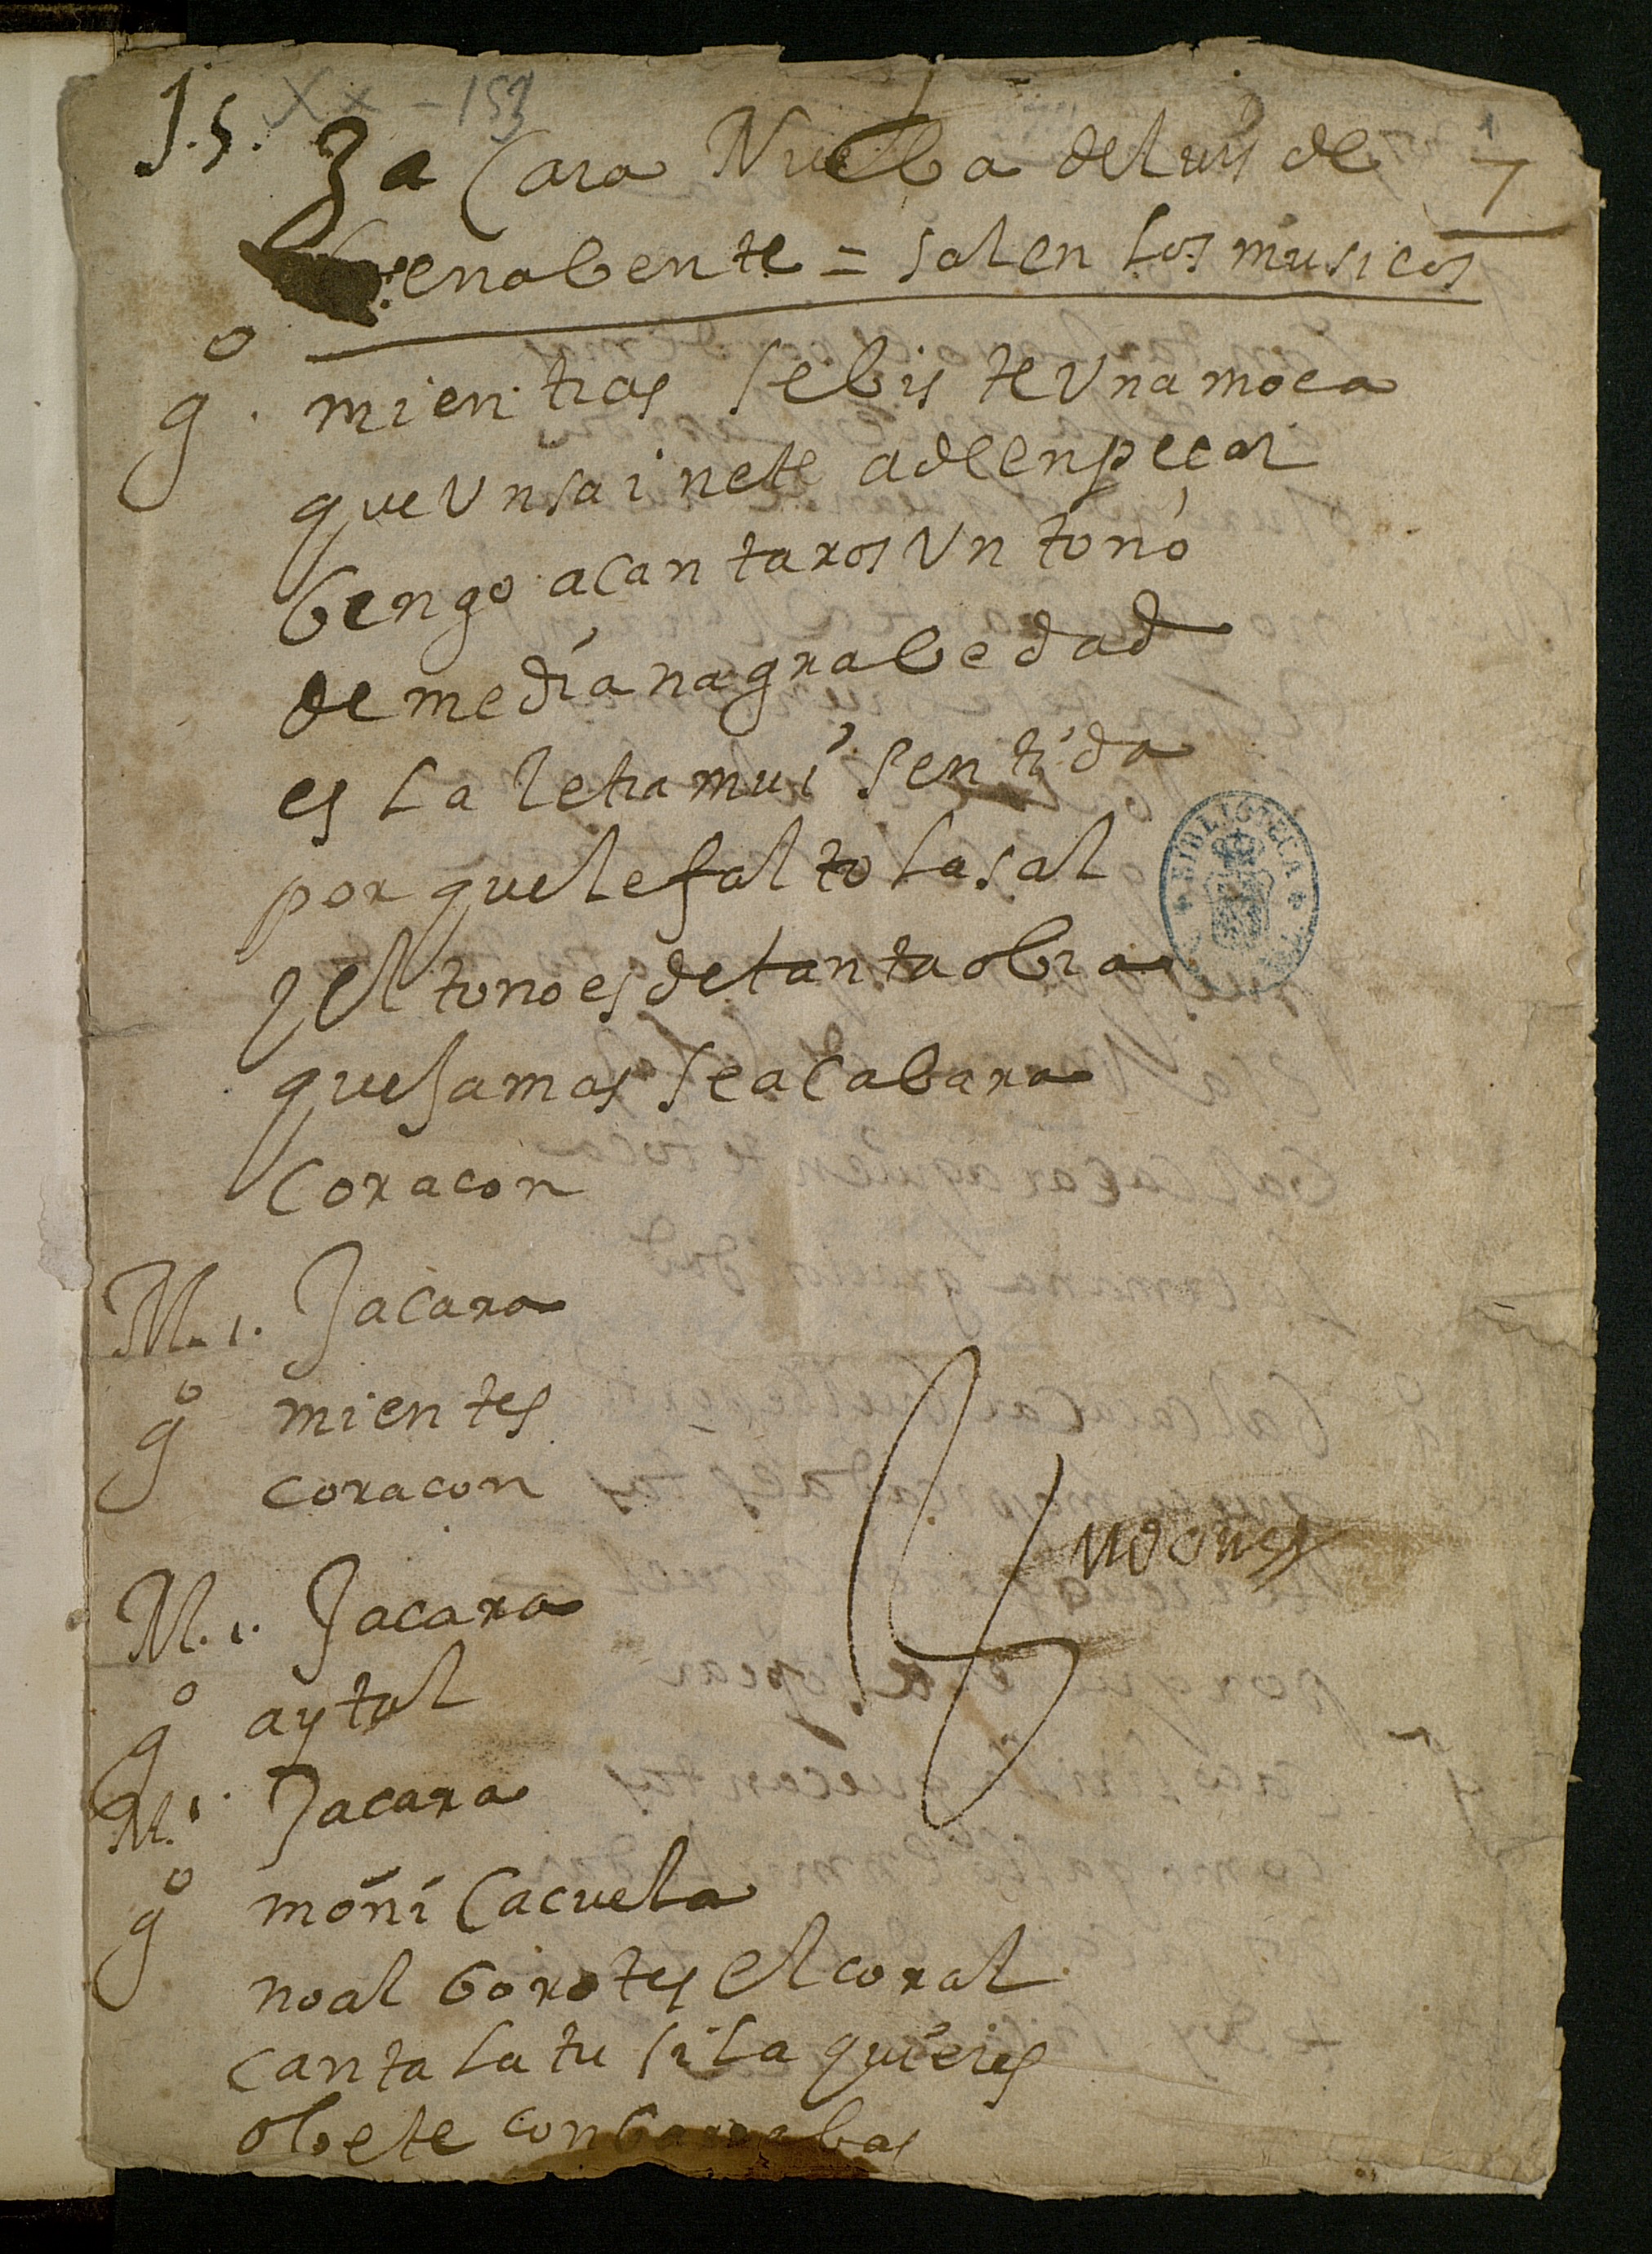 J.S. XX - 153
Jacara Nueba de luis de 7
benabente = salen los musicos
go. mientras se biste Una moca
que Un sainete a de enpecar
bengo a cantaros Un tono
de mediana grabedad
es la letra mui sentida
por que le falto la sal
y el tono es de tanta obra
que Jamas se acabara
coracon
M. 1. Jacara
go mientes
coracon
M. 1. Jacara
go ay tal
M. 1. Jacara
go moni Cacuela
no alborotes el coral
canta la tu si la quieres
o bete con barrabas
BIBLIOTECA